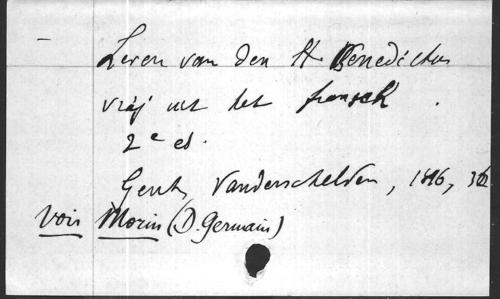 Leven van den H. Benedictus
vrij uit het fransch.
2e ed.
Gent, Vanderschelden, 1896,
Voir Morin (D. Germain)